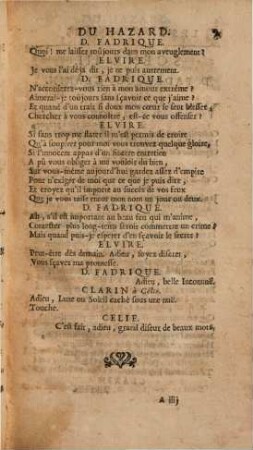 DU HAZARD.
D. FADRIQUE.
Quoi ! me laissez toûjours dans mon aveuglement ?
ELVIRE.
Je vous l'ai déja dit, je ne puis autrement.
D. FADRIQUE.
N'accorderez-vous rien à mon amour extrême ?
Aimerai-je toûjours sans sçavoir ce que j'aime ?
Et quand d'un trait si doux mon cœur se sent blesser,
Chercher à vous connoître, est-ce vous offenser ?
ELVIRE.
Si sans trop me flater il m'est permis de croire
Qu'à soupirer pour moi vous trouvez quelque gloire,
Si l'innocent appas d'un sincere entretien
A pû vous obliger à me vouloir du bien,
Sur vous-même aujourd'hui gardez assez d'empire
Pour n'exiger de moi que ce que je puis dire,
Et croyez qu'il importe au succès de vos feux
Que je vous taise encor mon nom un jour ou deux.
D. FADRIQUE.
Ah, s'il est important au beau feu qui m'anime,
Contester plus long-tems seroit commettre un crime :
Mais quand puis-je esperer d'en sçavoir le secret ?
ELVIRE.
Peut-être dès demain. Adieu, soyez discret,
Vous sçavez ma promesse.
D. FADRIQUE.
Adieu, belle Inconnuë.
CLARIN à Celie.
Adieu, Lune ou Soleil caché sous une nuë.
Touche.
CELIE.
C'est fait, adieu, grand diseur de beaux mots,
A iiij